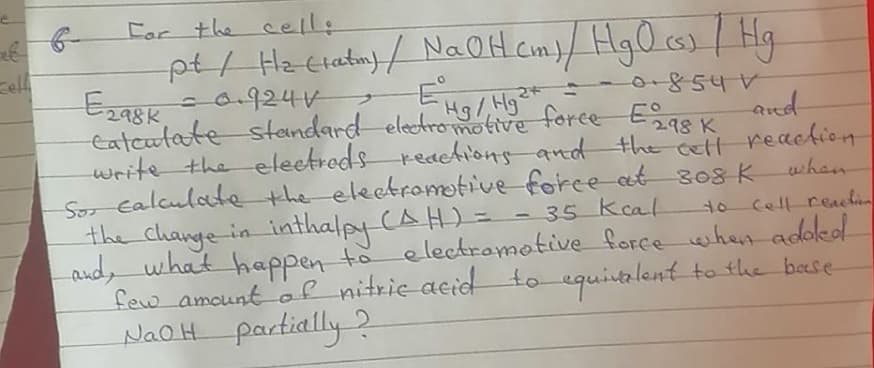 6- For the cell:
pt / H2 (1atm) / NaOH (m) / HgO (s) / Hg
E298K = 0.924V , E°Hg/Hg2+ = - 0.854 V
calculate standard electromotive force E°298 K and
write the electrods reactions and the cell reaction
So, calculate the electromotive force at 308 K when
the change in inthalpy (ΔH) = - 35 Kcal to cell reaction
and, what happen to electromotive force when added
few amount of nitric acid to equivalent to the base
NaOH partially ?
cell